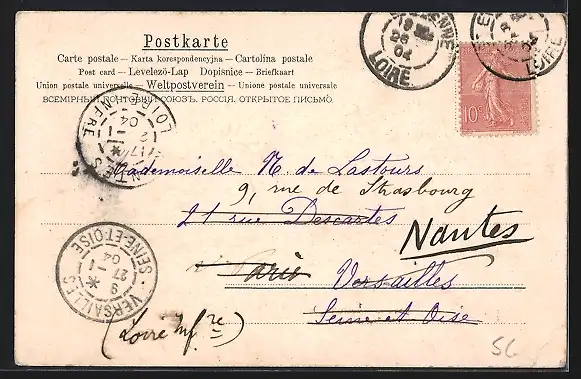 Postkarte
Carte postale — Karta korespondencyjna — Cartolina postale
Post card — Levelező-Lap Dopisnice — Briefkaart
Union postale universelle — Weltpostverein — Unione postale universale
ВСЕМІРНЫЙ ПОЧТОВЫЙ СОЮЗЪ. РОССІЯ. ОТКРЫТОЕ ПИСЬМО.
LOIRE
04
10c
LOIRE
LOIRE INFRE
NANTES
Mademoiselle N. de Lastours
9, rue de Strasbourg
21 rue Descartes
Nantes
Paris
Versailles
Seine et Oise
(Loire Infre)
VERSAILLES
SEINE-ET-OISE
9
27 - 1
04
56